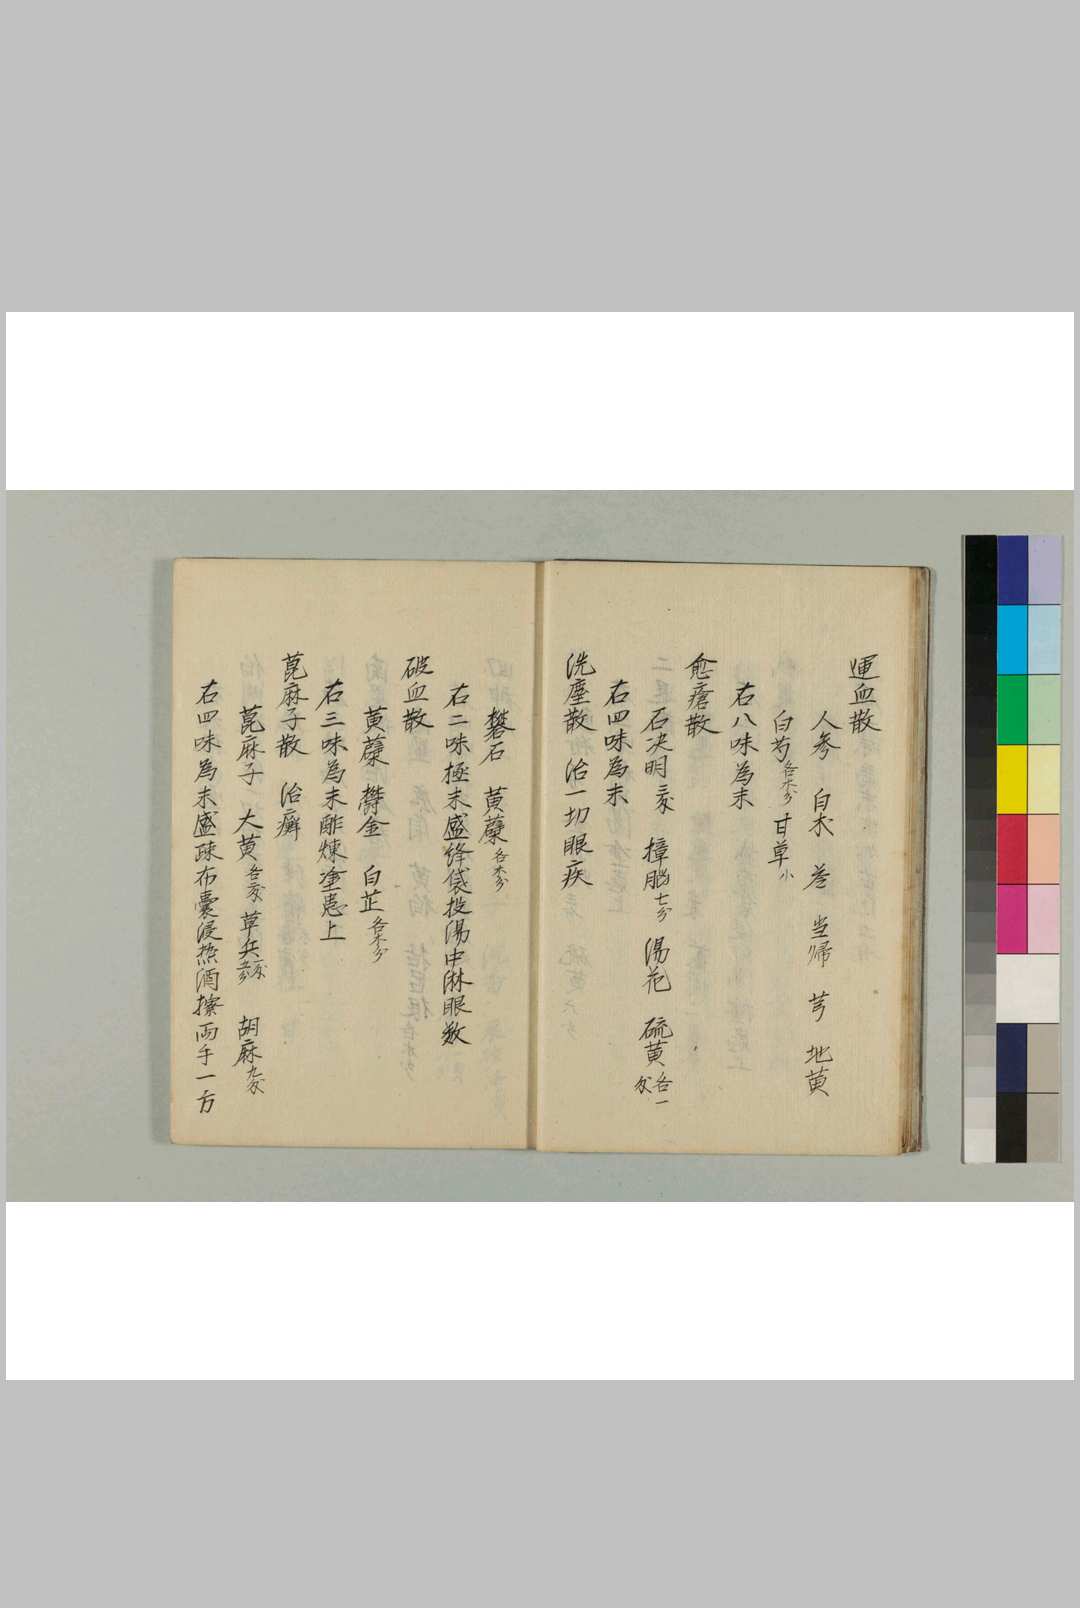 運血散
人參 白朮 苍 当帰 芎 地黄
白芍各木分 甘草小
右八味為末
愈瘡散
石决明 樟脳七分 湯花 硫黄各一
右四味為末
洗塵散 治一切眼疾
礬石 黄蘗各木分
右二味極末盛絳袋投湯中淋眼数
破血散
黄蘗 欝金 白芷各木分
右三味為末酢煉塗患上
萞麻子散 治癬
萞麻子 大黄 草 胡麻
右四味為末盛疎布嚢浸热酒擦両手一方